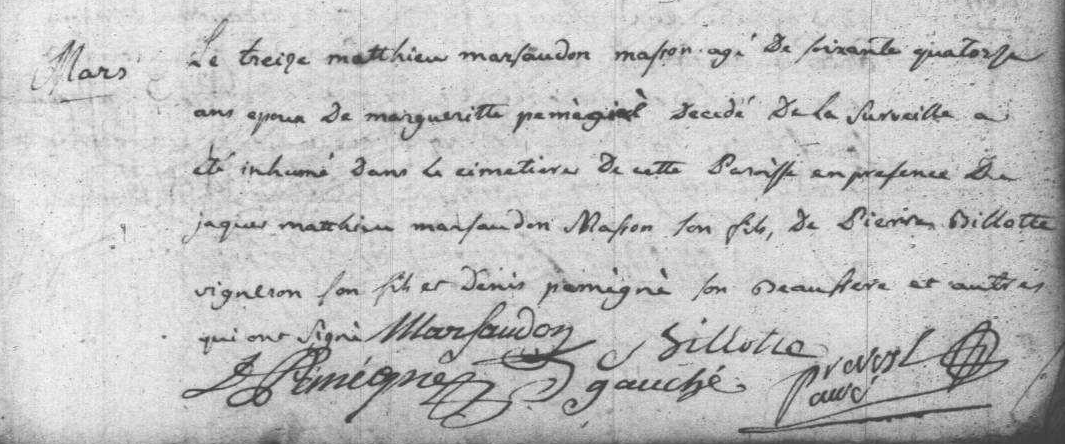 Mars
Le treize matthieu marsaudon masson agé De soixante quatorse
ans epoux De margueritte pemégné Decedé De la surveille a
été inhumé Dans le cimetiere De cette Paroisse en presence De
jaques matthieu marsaudon Masson son fils, De Pierre Billotte
vigneron son fils et Denis pemégné son Beaufrere et autres
qui ont signé Marsaudon Billotte
D Pemégné gauché Prevost
curé